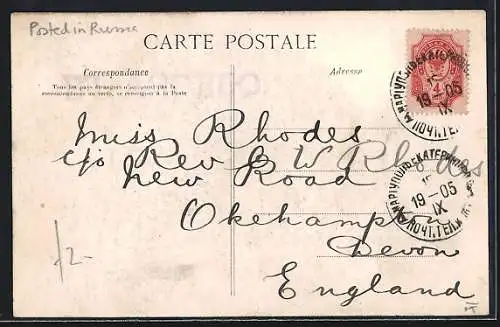 Posted in Russia
CARTE POSTALE
Correspondance
Tous les pays étrangers n'acceptent pas la
correspondance au verso, se renseigner à la Poste
Adresse
4
МАРІУПОЛЬ ЕКАТЕР
19-05
IX
ПОЧТ. ТЕЛ.
Miss Rhodes
c/o Rev G W Rhodes
New Road
Okehampton
Devon
England
МАРІУПОЛЬ ЕКАТЕРИН
19-05
IX
ПОЧТ. ТЕЛ.